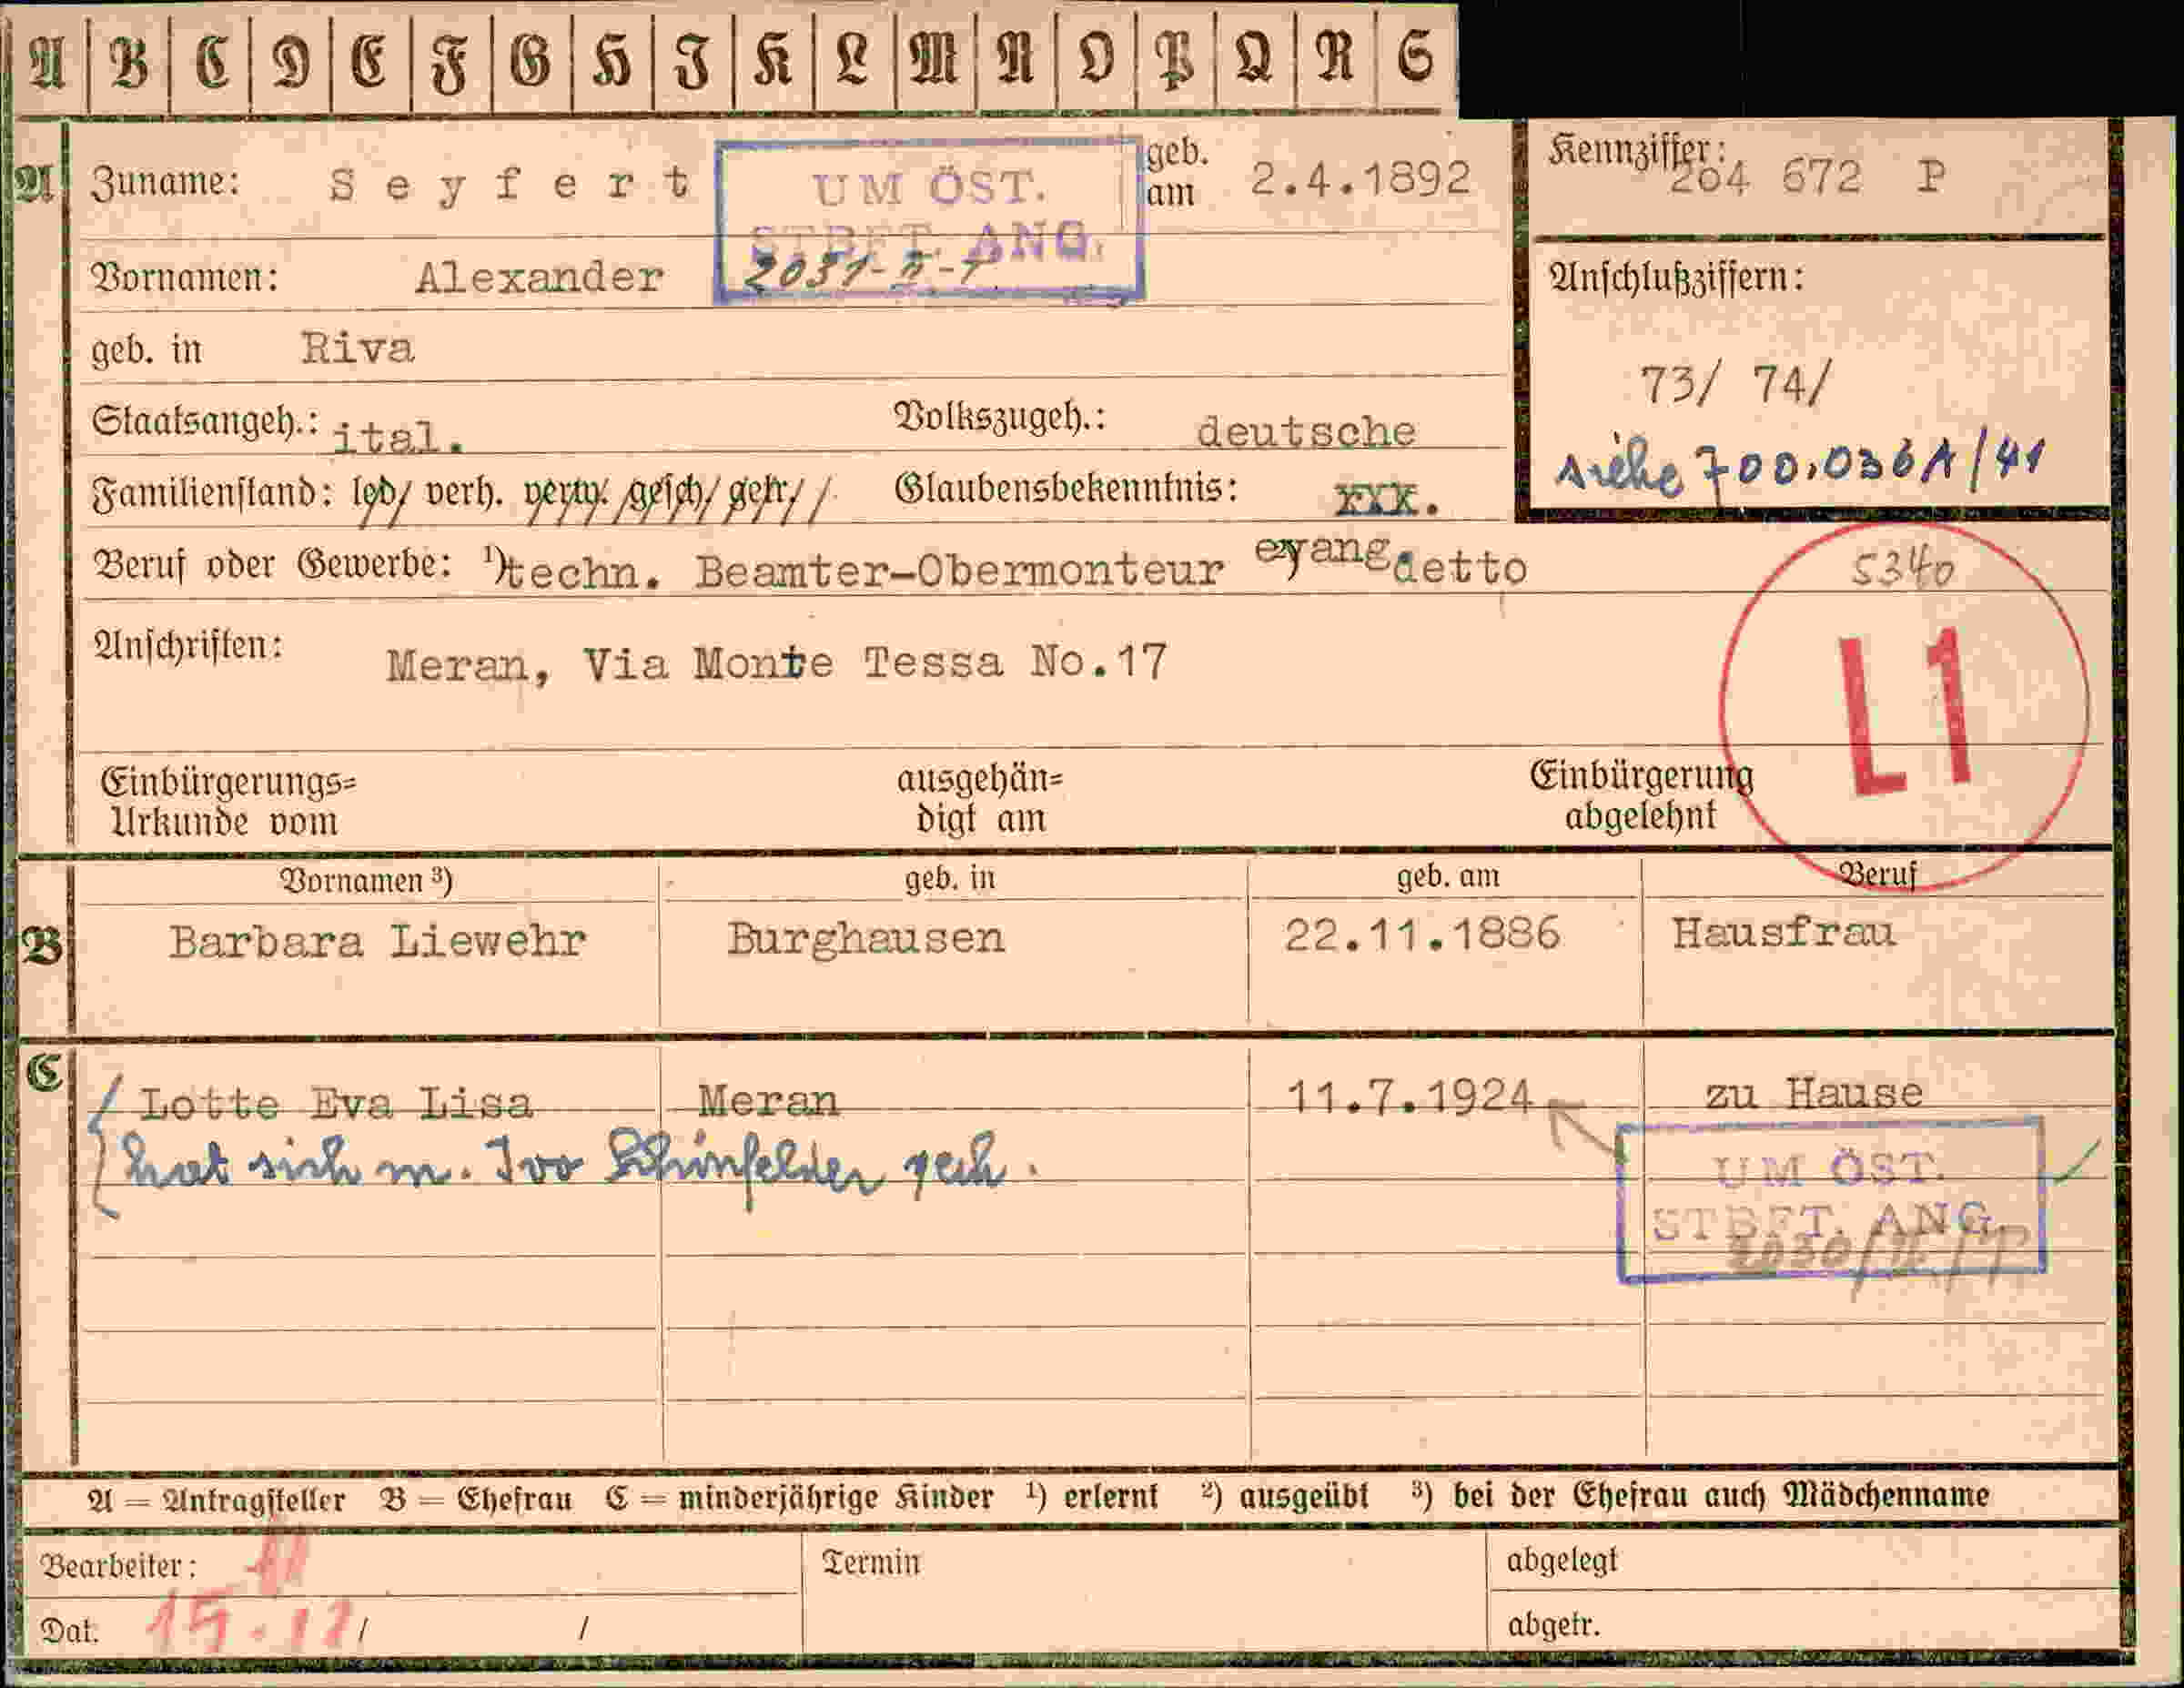 A B C D E F G H I K L M N O P Q R S
A Zuname: Seyfert UM ÖST. geb. am 2.4.1892 Kennziffer: 264 672 P
STBFT. ANG.
Vornamen: Alexander Anschlußziffern:
geb. in Riva
73/ 74/
Staatsangeh.: ital. Volkszugeh.: deutsche
siehe 700.036A/41
Familienstand: led/ verh. verw. /gesch/ getr/ /. Glaubensbekenntnis: xxx.
evang
Beruf oder Gewerbe: ¹) techn. Beamter-Obermonteur detto 5340
Anschriften: Meran, Via Monte Tessa No.17
L1
Einbürgerungs= ausgehän= Einbürgerung
Urkunde vom digt am abgelehnt
Vornamen ³) geb. in geb. am Beruf
B Barbara Liewehr Burghausen 22.11.1886 Hausfrau
C Lotte Eva Lisa Meran 11.7.1924 zu Hause
hat sich m. Ivo Schönfelder
UM ÖST.
STBFT. ANG.
A = Antragsteller B = Ehefrau C = minderjährige Kinder ¹) erlernt ²) ausgeübt ³) bei der Ehefrau auch Mädchenname
Bearbeiter: Termin abgelegt
Dat: / / abgetr.